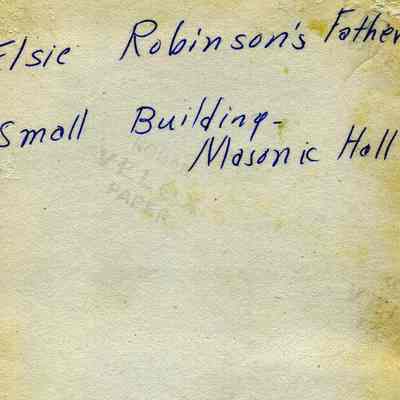 Elsie Robinson's Father
Small Building-
Masonic Hall
VELOX
PAPER